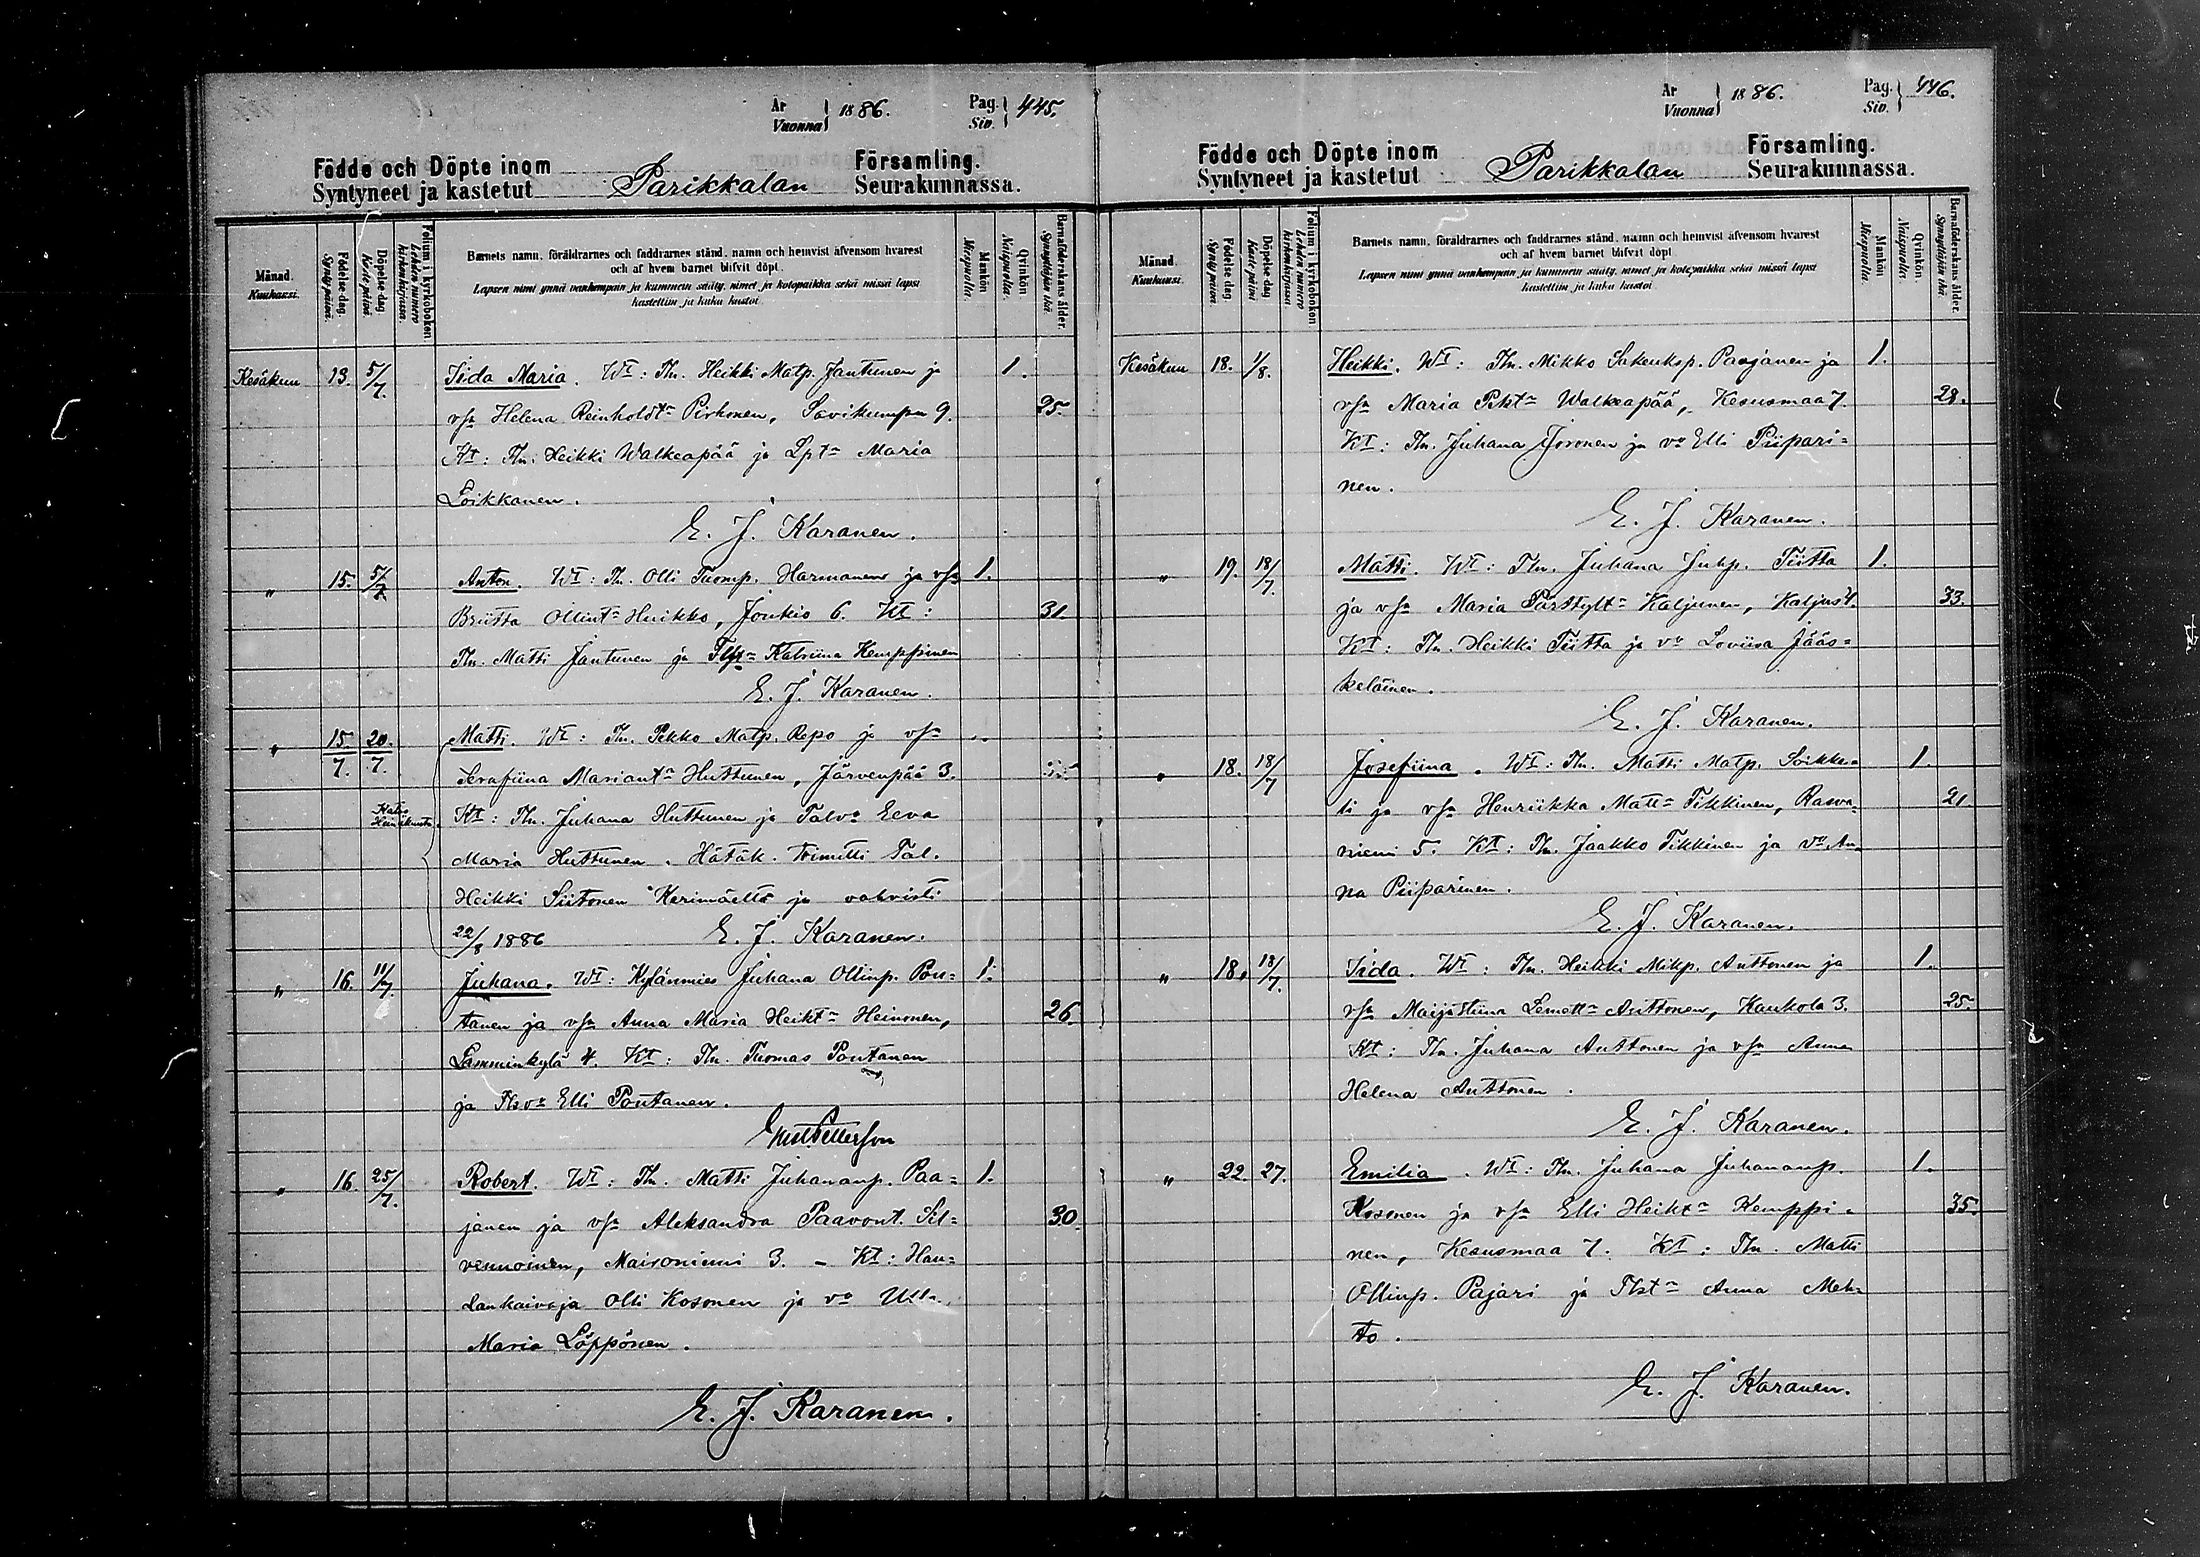 År
Vuonna } 1886. Pag.
Siv. } 445.
Födde och Döpte inom
Syntyneet ja kastetut Parikkalan Församling.
Seurakunnassa.
Månad.
Kuukausi.
Födelse-dag.
Syntypäivä.
Döpelse-dag
Kaste-päivä.
Folium i kyrkoboken
Lehden numero
kirkonkirjassa.
Barnets namn, föräldrarnes och faddrarnes stånd, namn och hemvist äfvensom hvarest
och af hvem barnet blifvit döpt.
Lapsen nimi ynnä vanhempain ja kummein sääty, nimet ja kotopaikka sekä missä lapsi
kastettiin ja kuka kastoi.
Mankön
Miespuolia.
Qvinkön.
Naispuolia.
Barnaföderskans ålder.
Synnyttäjän ikä.
Kesäkuu 13. 5/7. Iida Maria. Wt: Tln. Heikki Matp. Jantunen ja 1.
vsa Helena Reinholdtr Pirhonen, Savikumpu 9. 25.
Kt: Tln. Heikki Walkeapää ja Lptr Maria
Loikkanen.
E. J. Karanen.
" 15. 5/7. Anton. Wt: Tln. Olli Tuomp. Harmanen ja vsa 1.
Briitta Ollintr Huikko, Joukio 6. Kt: 31.
Tln. Matti Jantunen ja Katriina Kemppinen
E. J. Karanen.
" 15./7. 20./7. Matti. Wt: Tln. Pekko Matp. Repo ja vsa
Serafiina Mariantr Huttunen, Järvenpää 3.
Katso
Heinäkuuta Kt: Tln. Juhana Huttunen ja Talva Eeva
Maria Huttunen. Hätäk. toimitti Tal.
Heikki Siitonen Kerimäeltä ja vahvisti
22/8 1886 E. J. Karanen.
" 16. 11/7. Juhana. Wt: Kylänmies Juhana Ollinp. Pon= 1.
tanen ja vsa Anna Maria Heiktr Heinonen, 26.
Lamminkylä 4. Kt: Tln. Tuomas Pontanen
ja Tlsva Elli Pontanen.
Petterson
" 16. 25/7. Robert. Wt: Tln. Matti Juhananp. Paa= 1.
janen ja vsa Aleksandra Paavont. Sil= 30.
vennoinen, Maironiemi 3. – Kt: Hau=
dankaivaja Olli Kosonen ja va Ulla
Maria Löppönen.
E. J. Karanen.
År
Vuonna } 1886. Pag.
Siv. } 446.
Födde och Döpte inom
Syntyneet ja kastetut Parikkalan Församling.
Seurakunnassa.
Månad.
Kuukausi.
Födelse-dag.
Syntypäivä.
Döpelse-dag
Kaste-päivä
Folium i kyrkoboken
Lehden numero
kirkonkirjassa.
Barnets namn, föräldrarnes och faddrarnes stånd, namn och hemvist äfvensom hvarest
och af hvem barnet blifvit döpt.
Lapsen nimi ynnä vanhempain ja kummein sääty, nimet ja kotopaikka sekä missä lapsi
kastettiin ja kuka kastoi.
Mankön
Miespuolia.
Qvinkön.
Naispuolia.
Barnaföderskans ålder.
Synnyttäjän ikä.
Kesäkuu 18. 1/8. Heikki. Wt: Tln. Mikko Sakeuksp. Paajanen ja 1.
vsa Maria Pektr Walkeapää, Kesusmaa 7. 28.
Kt: Tln. Juhana Joronen ja va Elli Piipari=
nen.
E. J. Karanen.
" 19. 18/7. Matti. Wt: Tln. Juhana Juhp. Tiitta 1.
ja vsa Maria Kaljunen, Kaljus 4. 33.
Kt: Tln. Heikki Tiitta ja va Loviisa Jääs=
keläinen.
E. J. Karanen.
" 18. 18/7 Josefiina. Wt: Tln. Matti Matp. Soikke= 1.
li ja vsa Henriikka Mattr Tikkinen, Rasva= 21
niemi 5. Kt: Tln. Jaakko Tikkinen ja va An=
na Piiparinen.
E. J. Karanen.
" 18. 18/7. Iida. Wt: Tln. Heikki Mikp. Anttonen ja 1.
vsa Maijastiina Lemettr Anttonen, Kaukola 3. 25.
Kt: Tln. Juhana Anttonen ja vsa Anna
Helena Anttonen.
E. J. Karanen.
" 22. 27. Emilia. Wt: Tln. Juhana Juhananp. 1.
Kosonen ja vsa Elli Heiktr Kemppi= 35.
nen, Kesusmaa 7. Kt: Tln. Matti
Ollinp. Pajari ja Tlstr Anna Meh=
to.
E. J. Karanen.